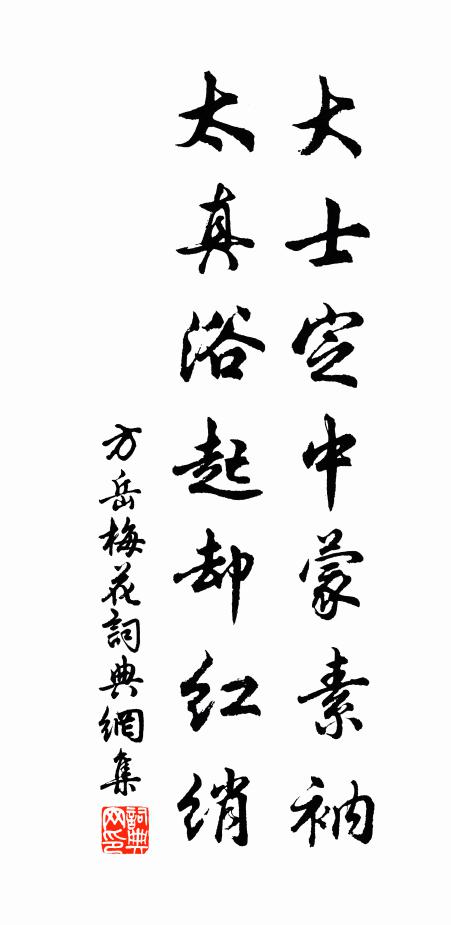 大士定中蒙素衲
太真浴起却红绡
方岳梅花詞典網集
詞典网印